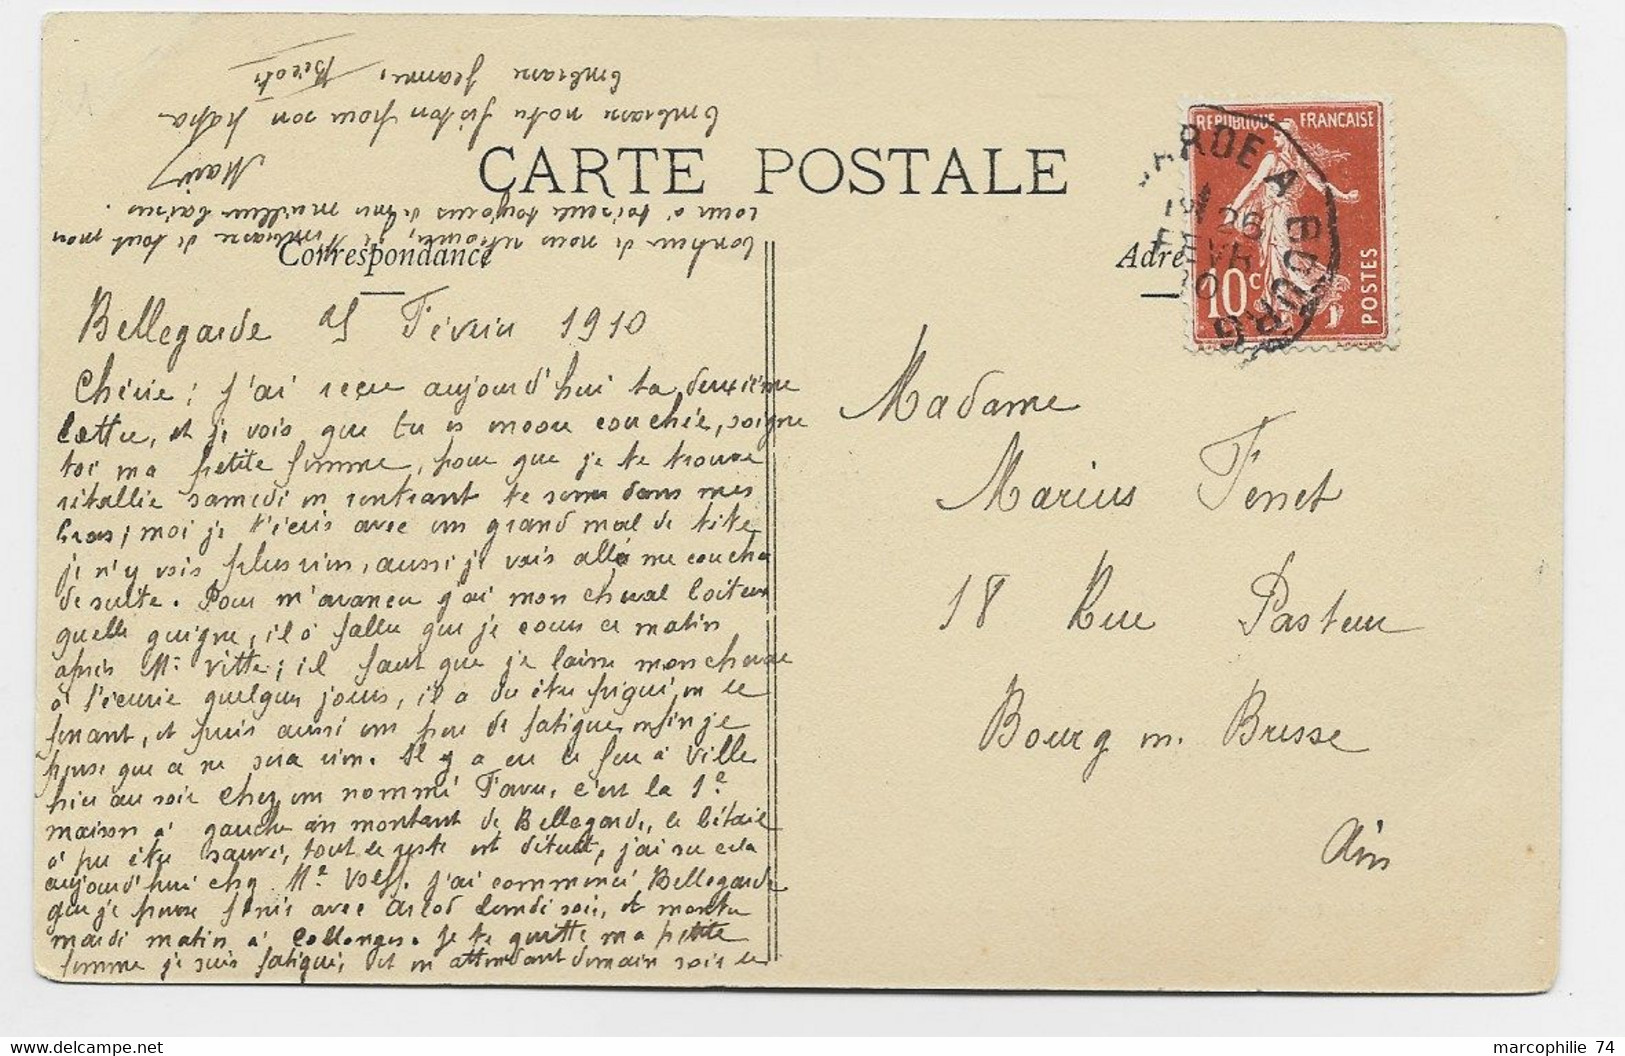 CARTE POSTALE
Correspondance
Bellegarde 25 Février 1910
Chérie; J'ai reçu aujourd'hui ta deuxième
lettre, et je vois que tu es encore couchée, soigne
toi ma petite femme, pour que je te trouve
rétablie samedi en rentrant te serrer dans mes
bras; moi je t'écris avec un grand mal de tête
je n'y vois plus rien, aussi je vais allé me coucher
de suite. Pour m'avancer j'ai mon cheval boiteux
quelle guigne, il a fallu que je coure ce matin
après Mr Vitte; il faut que je laisse mon cheval
à l'écurie quelques jours, il a du être piqué en le
ferrant, et puis aussi un peu de fatigue enfin je
pense que ce ne sera rien. Il y a eu le feu à Ville
hier au soir chez un nommé Favre, c'est la 1e
maison à gauche en montant de Bellegarde, le bétail
a pu être sauvé, tout le reste est détruit, j'ai su cela
aujourd'hui chez Me Volff. J'ai commencé Bellegarde
que je pense finir avec Arlod lundi soir, et monter
mardi matin à Collonges. Je te quitte ma petite
femme je suis fatigué, et en attendant demain soir le
bonheur de nous retrouver, je t'embrasse de tout mon
cœur à toi seule toujours de mes meilleurs baisers.
Marius
Embrasse notre fiston pour son papa
Embrasse Jeanne,
REPUBLIQUE FRANCAISE
10c
POSTES
RDE A BOURG
26
FEVR
10
Adre
Madame
Marius Fenet
18 Rue Pasteur
Bourg en Bresse
Ain
marcophilie 74